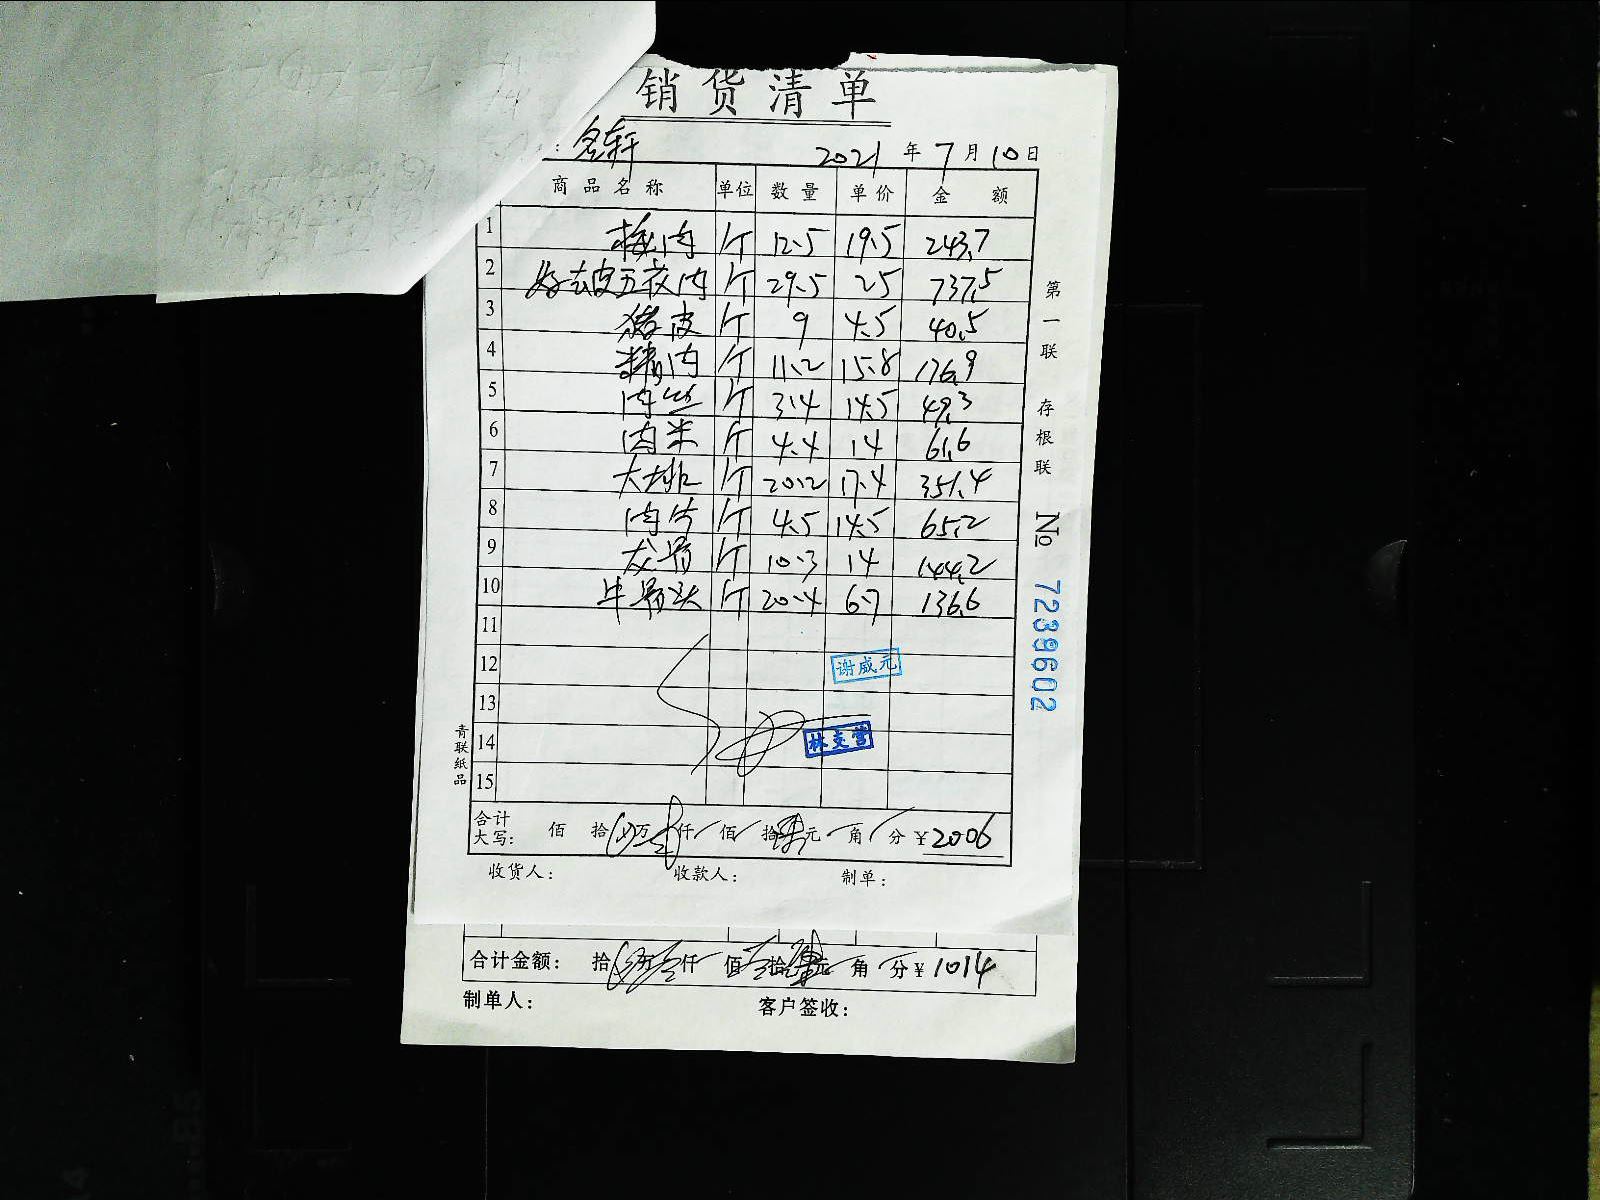 销货清单
：名轩 2021年7月10日
商品名称 单位 数量 单价 金额
1 梅肉 斤 12.5 19.5 243.7
2 好去皮五花肉 斤 29.5 25 737.5
3 猪皮 斤 9 4.5 40.5
4 精肉 斤 11.2 15.8 176.9
5 肉丝 斤 3.4 14.5 49.3
6 肉米 斤 4.4 14 61.6
7 大排 斤 20.2 17.4 351.4
8 肉片 斤 4.5 14.5 65.2
9 龙骨 斤 10.3 14 144.2
10 牛骨头 斤 20.4 6.7 136.6
11
12 谢成元
13
14
15
合计大写： 佰 拾 万 仟 佰 拾 元 角 分 ¥2006
收货人： 收款人： 制单：
第一联 存根联 No 7239602
青联纸品
合计金额： 拾 万 仟 佰 拾 元 角 分 ¥1014
制单人： 客户签收：